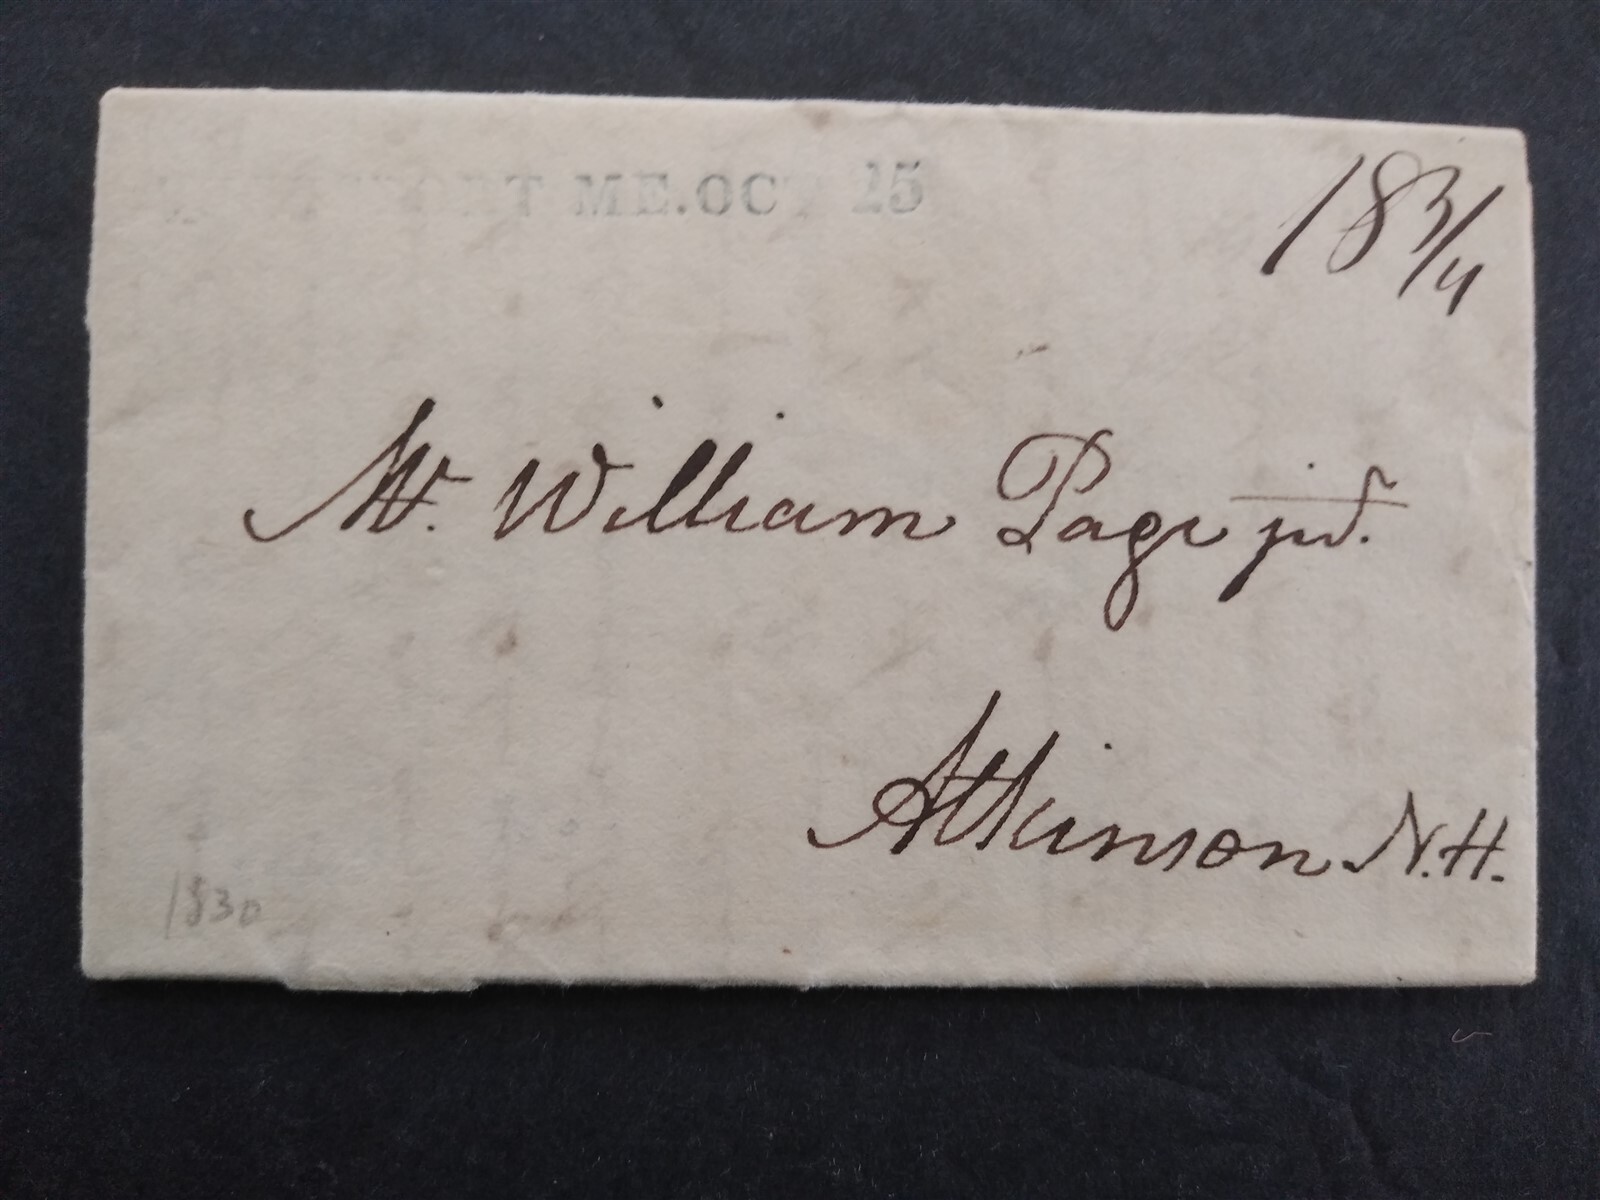 PORT ME. OCT 15
18 3/4
Mr. William Page jr.
Atkinson N.H.
1830